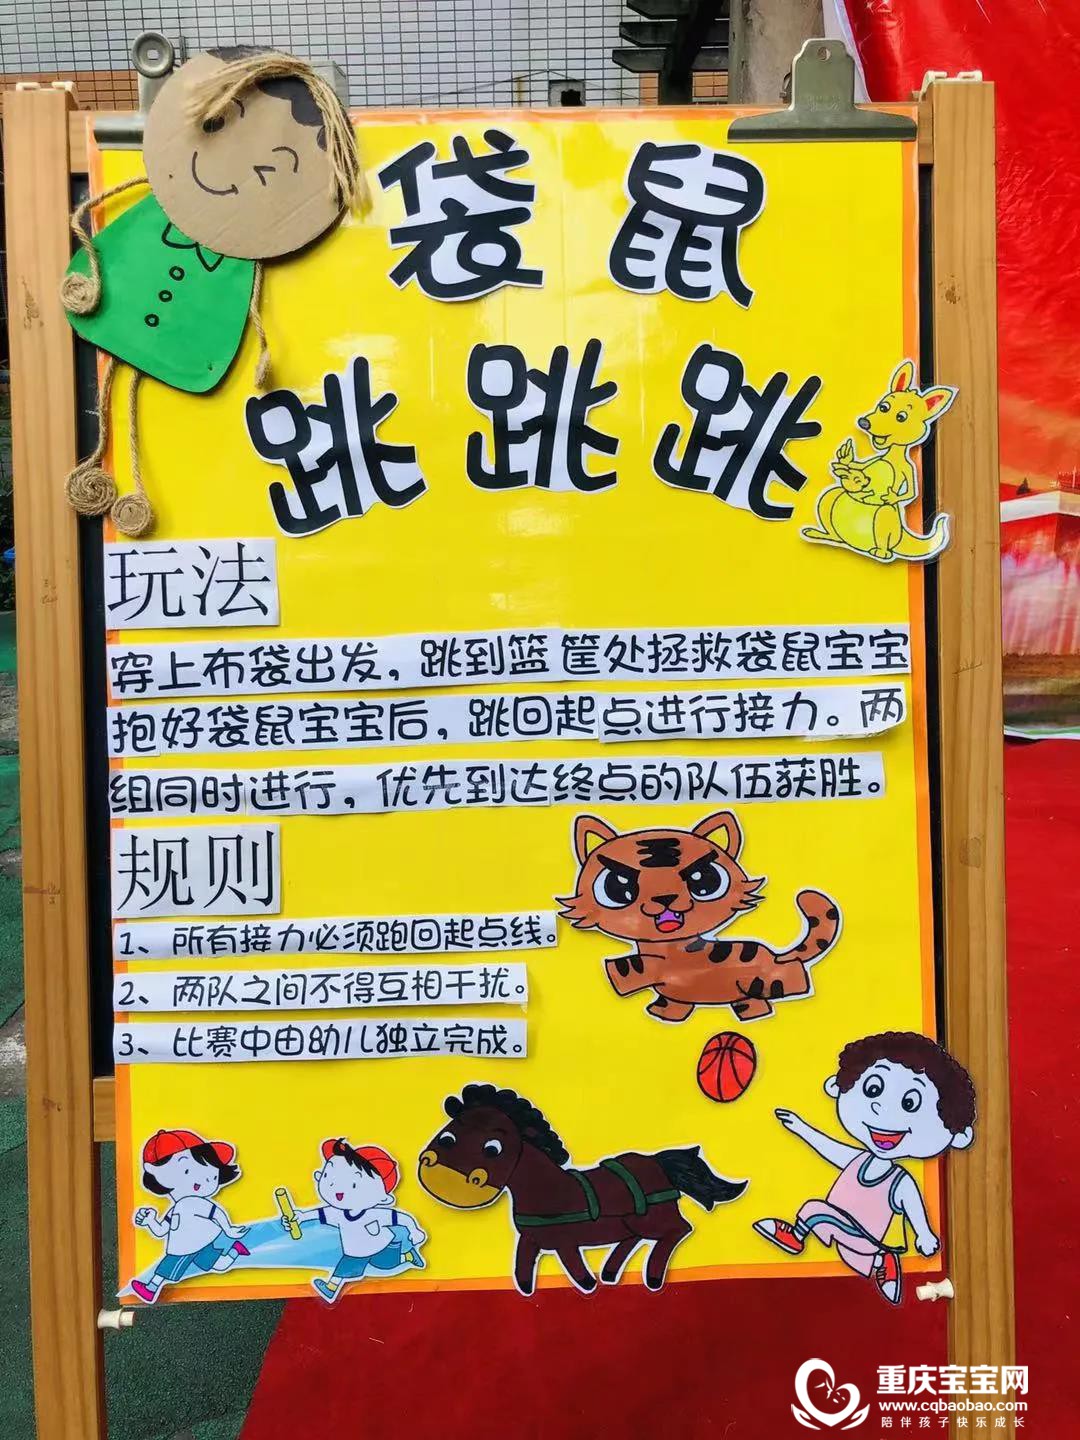 袋鼠
跳跳跳
玩法
穿上布袋出发，跳到篮筐处拯救袋鼠宝宝
抱好袋鼠宝宝后，跳回起点进行接力。两
组同时进行，优先到达终点的队伍获胜。
规则
1、所有接力必须跑回起点线。
2、两队之间不得互相干扰。
3、比赛中由幼儿独立完成。
重庆宝宝网
www.cqbaobao.com
陪伴孩子快乐成长